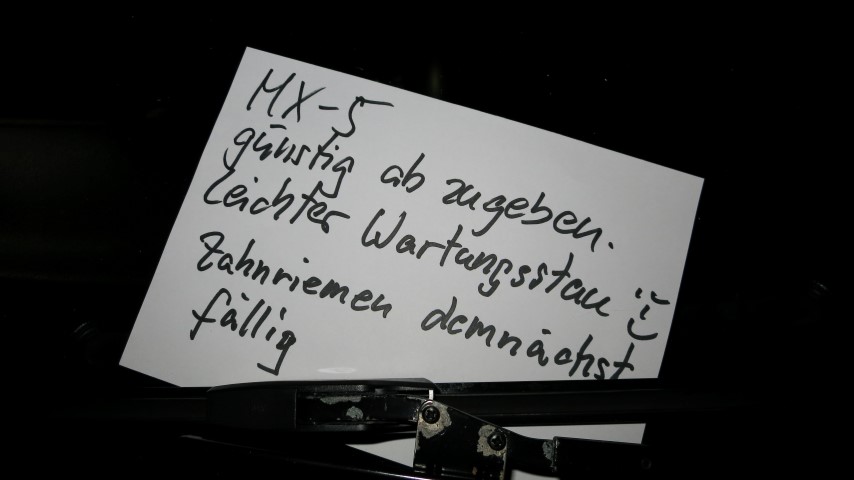 MX-5
günstig ab zugeben.
leichter Wartungsstau
Zahnriemen demnächst
fällig